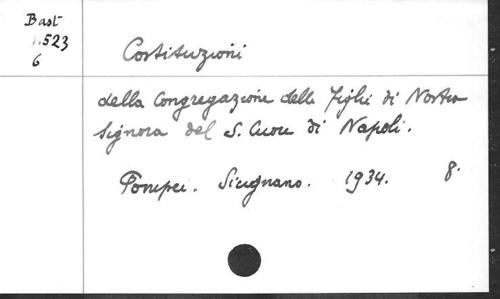 Bast
1.523
6
Costituzioni
della Congregazione delle Figlie di Nostra
Signora del S. Cuore di Napoli.
Pompei. Sicignano. 1934. 8.